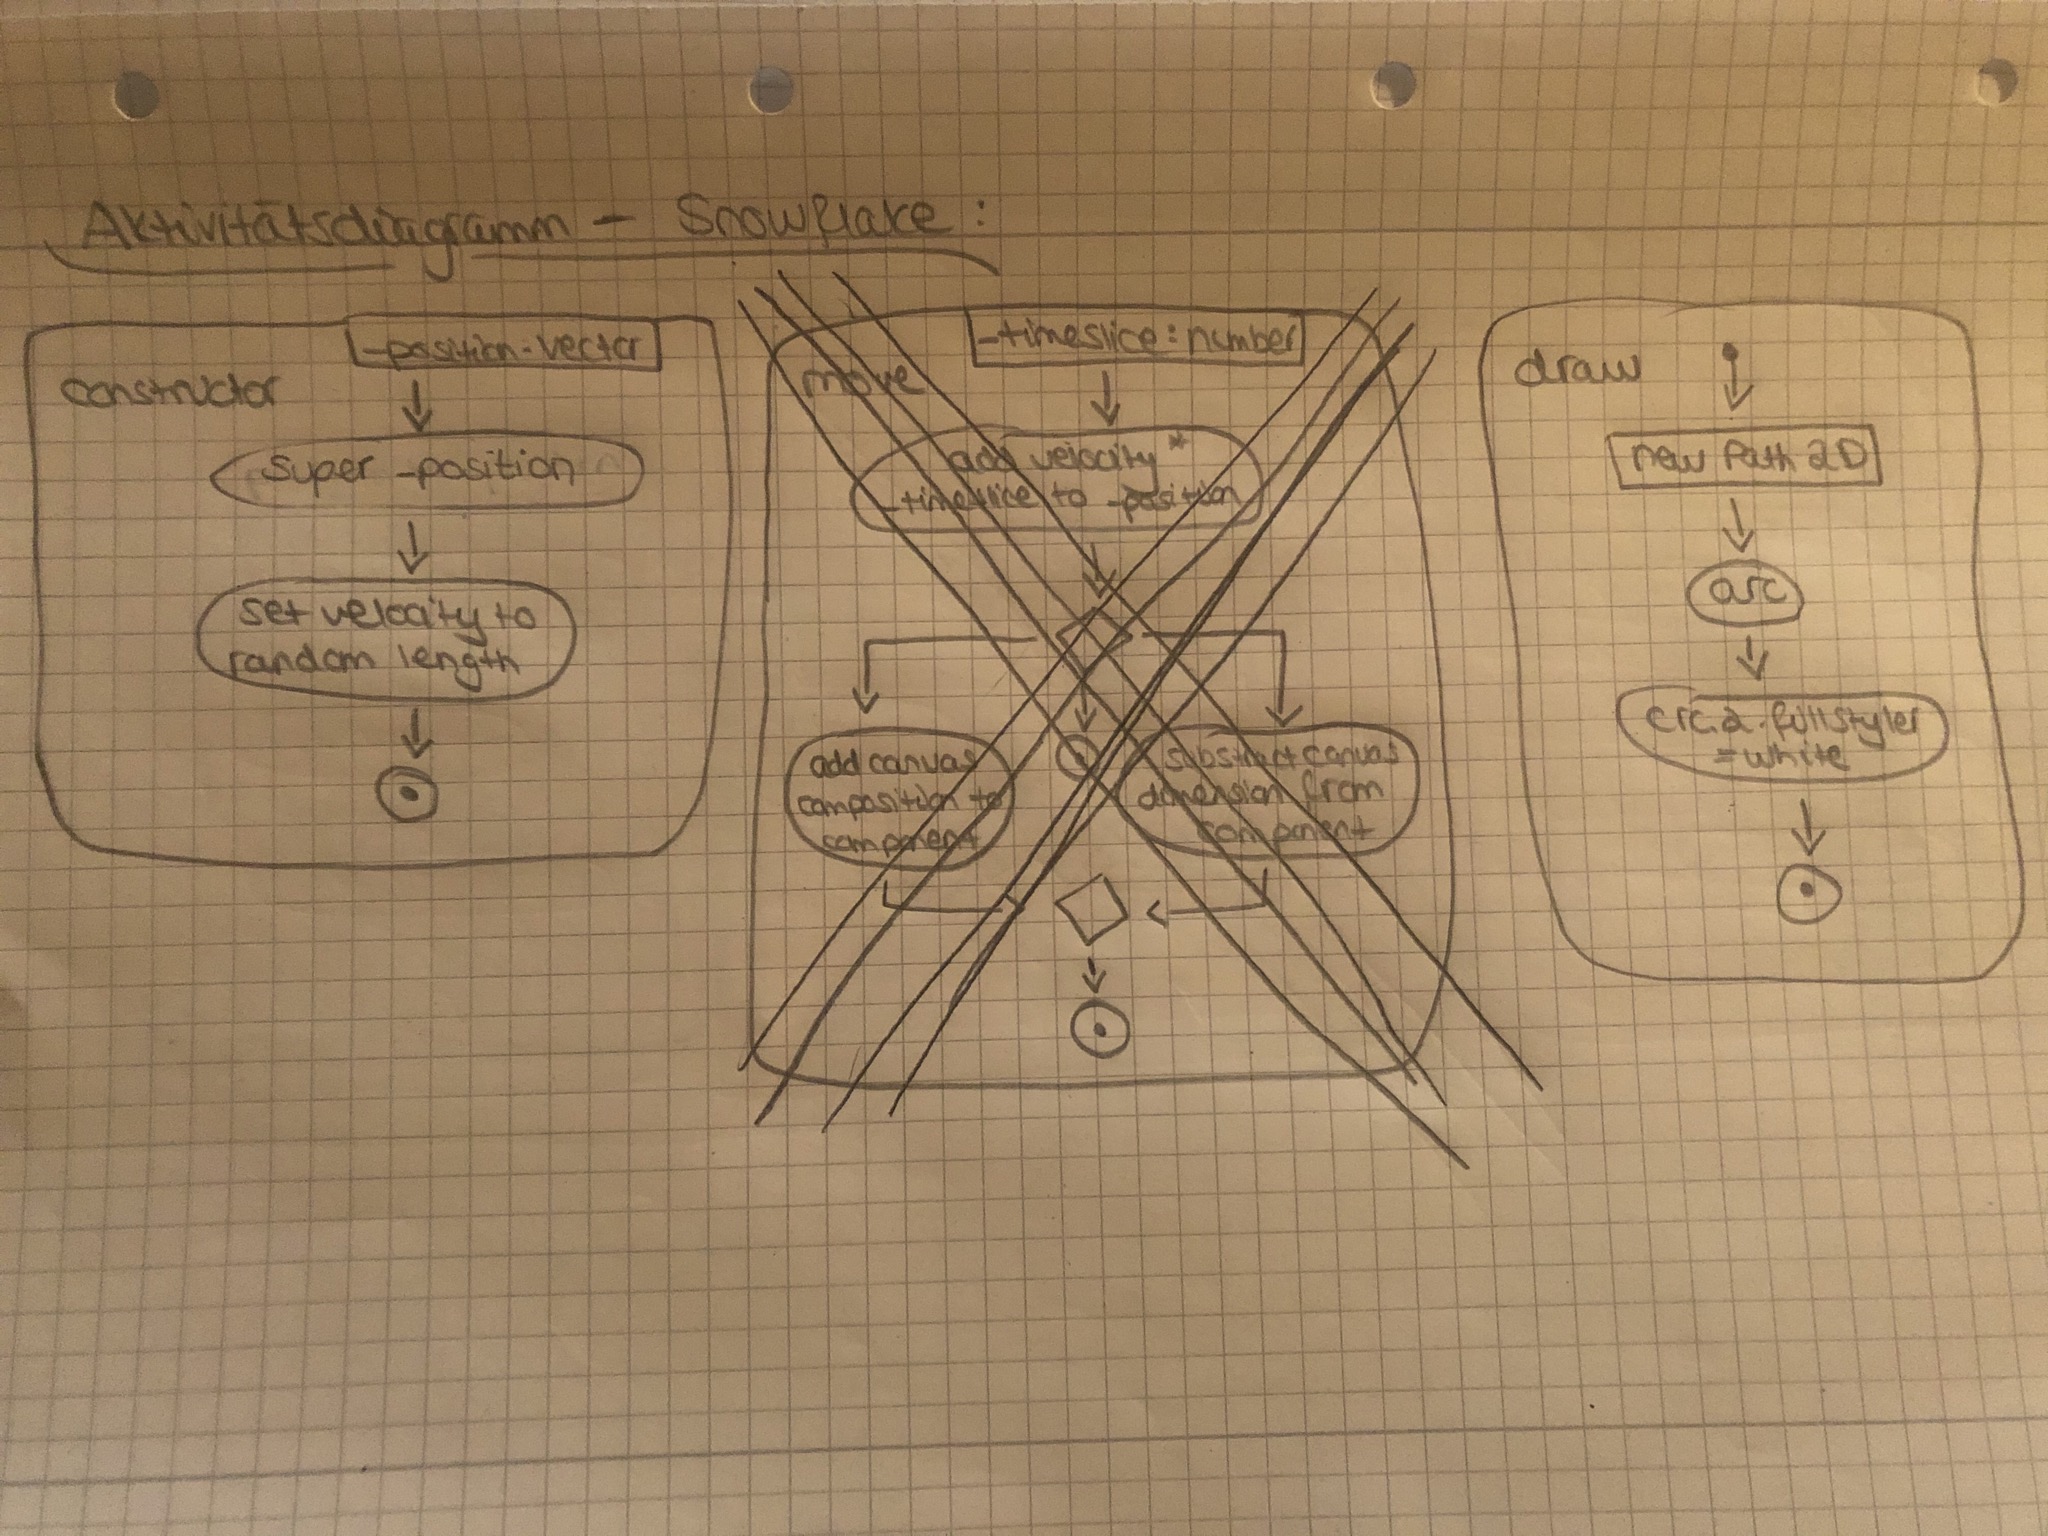 Aktivitätsdiagramm - Snowflake:
_position.vector
constructor
super _position
set velocity to
random length
_timeslice: number
move
add velocity *
_timeslice to _position
add canvas
composition to
component
substract canvas
dimension from
component
draw
new Path 2D
arc
crc.2.fullstyler
=white